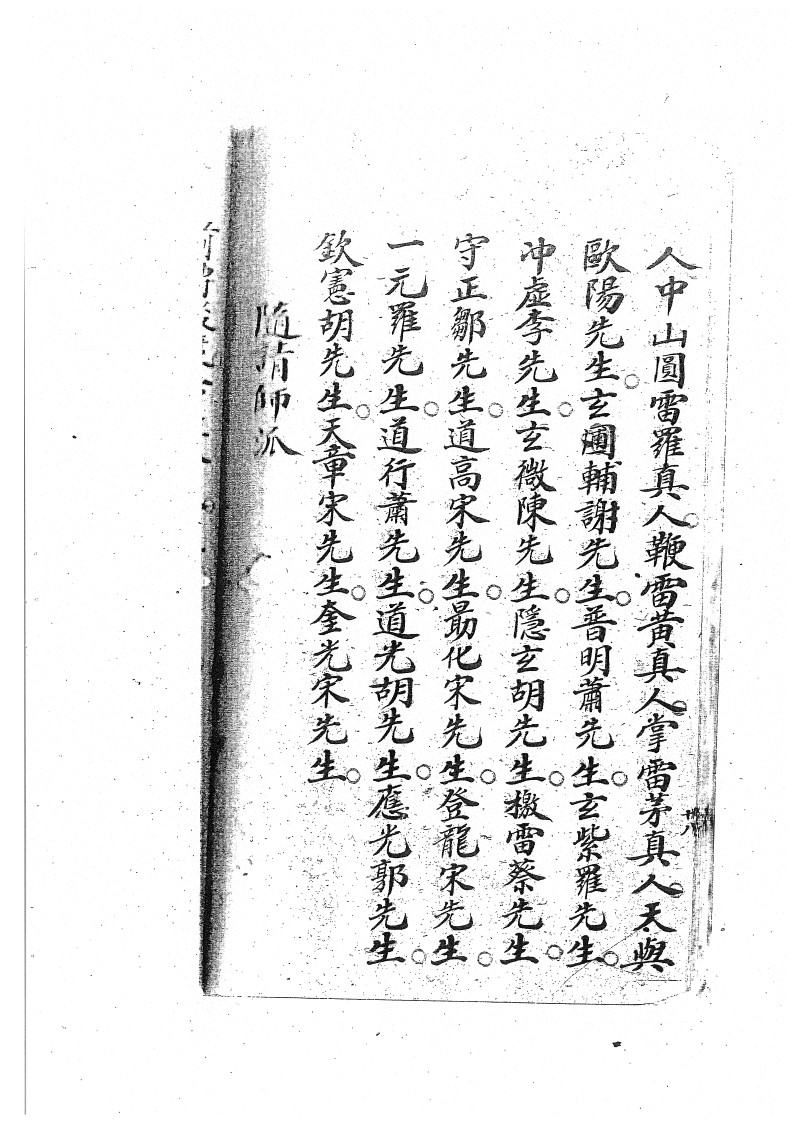 人中山圓雷羅真人鞭雷黃真人掌雷茅真人天與
歐陽先生玄圃輔謝先生普明蕭先生玄紫羅先生
冲虛李先生玄微陳先生隱玄胡先生檄雷蔡先生
守正鄒先生道高宋先生勗化宋先生登龍宋先生
一元羅先生道行蕭先生道光胡先生應光郭先生
欽憲胡先生天章宋先生奎光宋先生
隨請師派
卅八